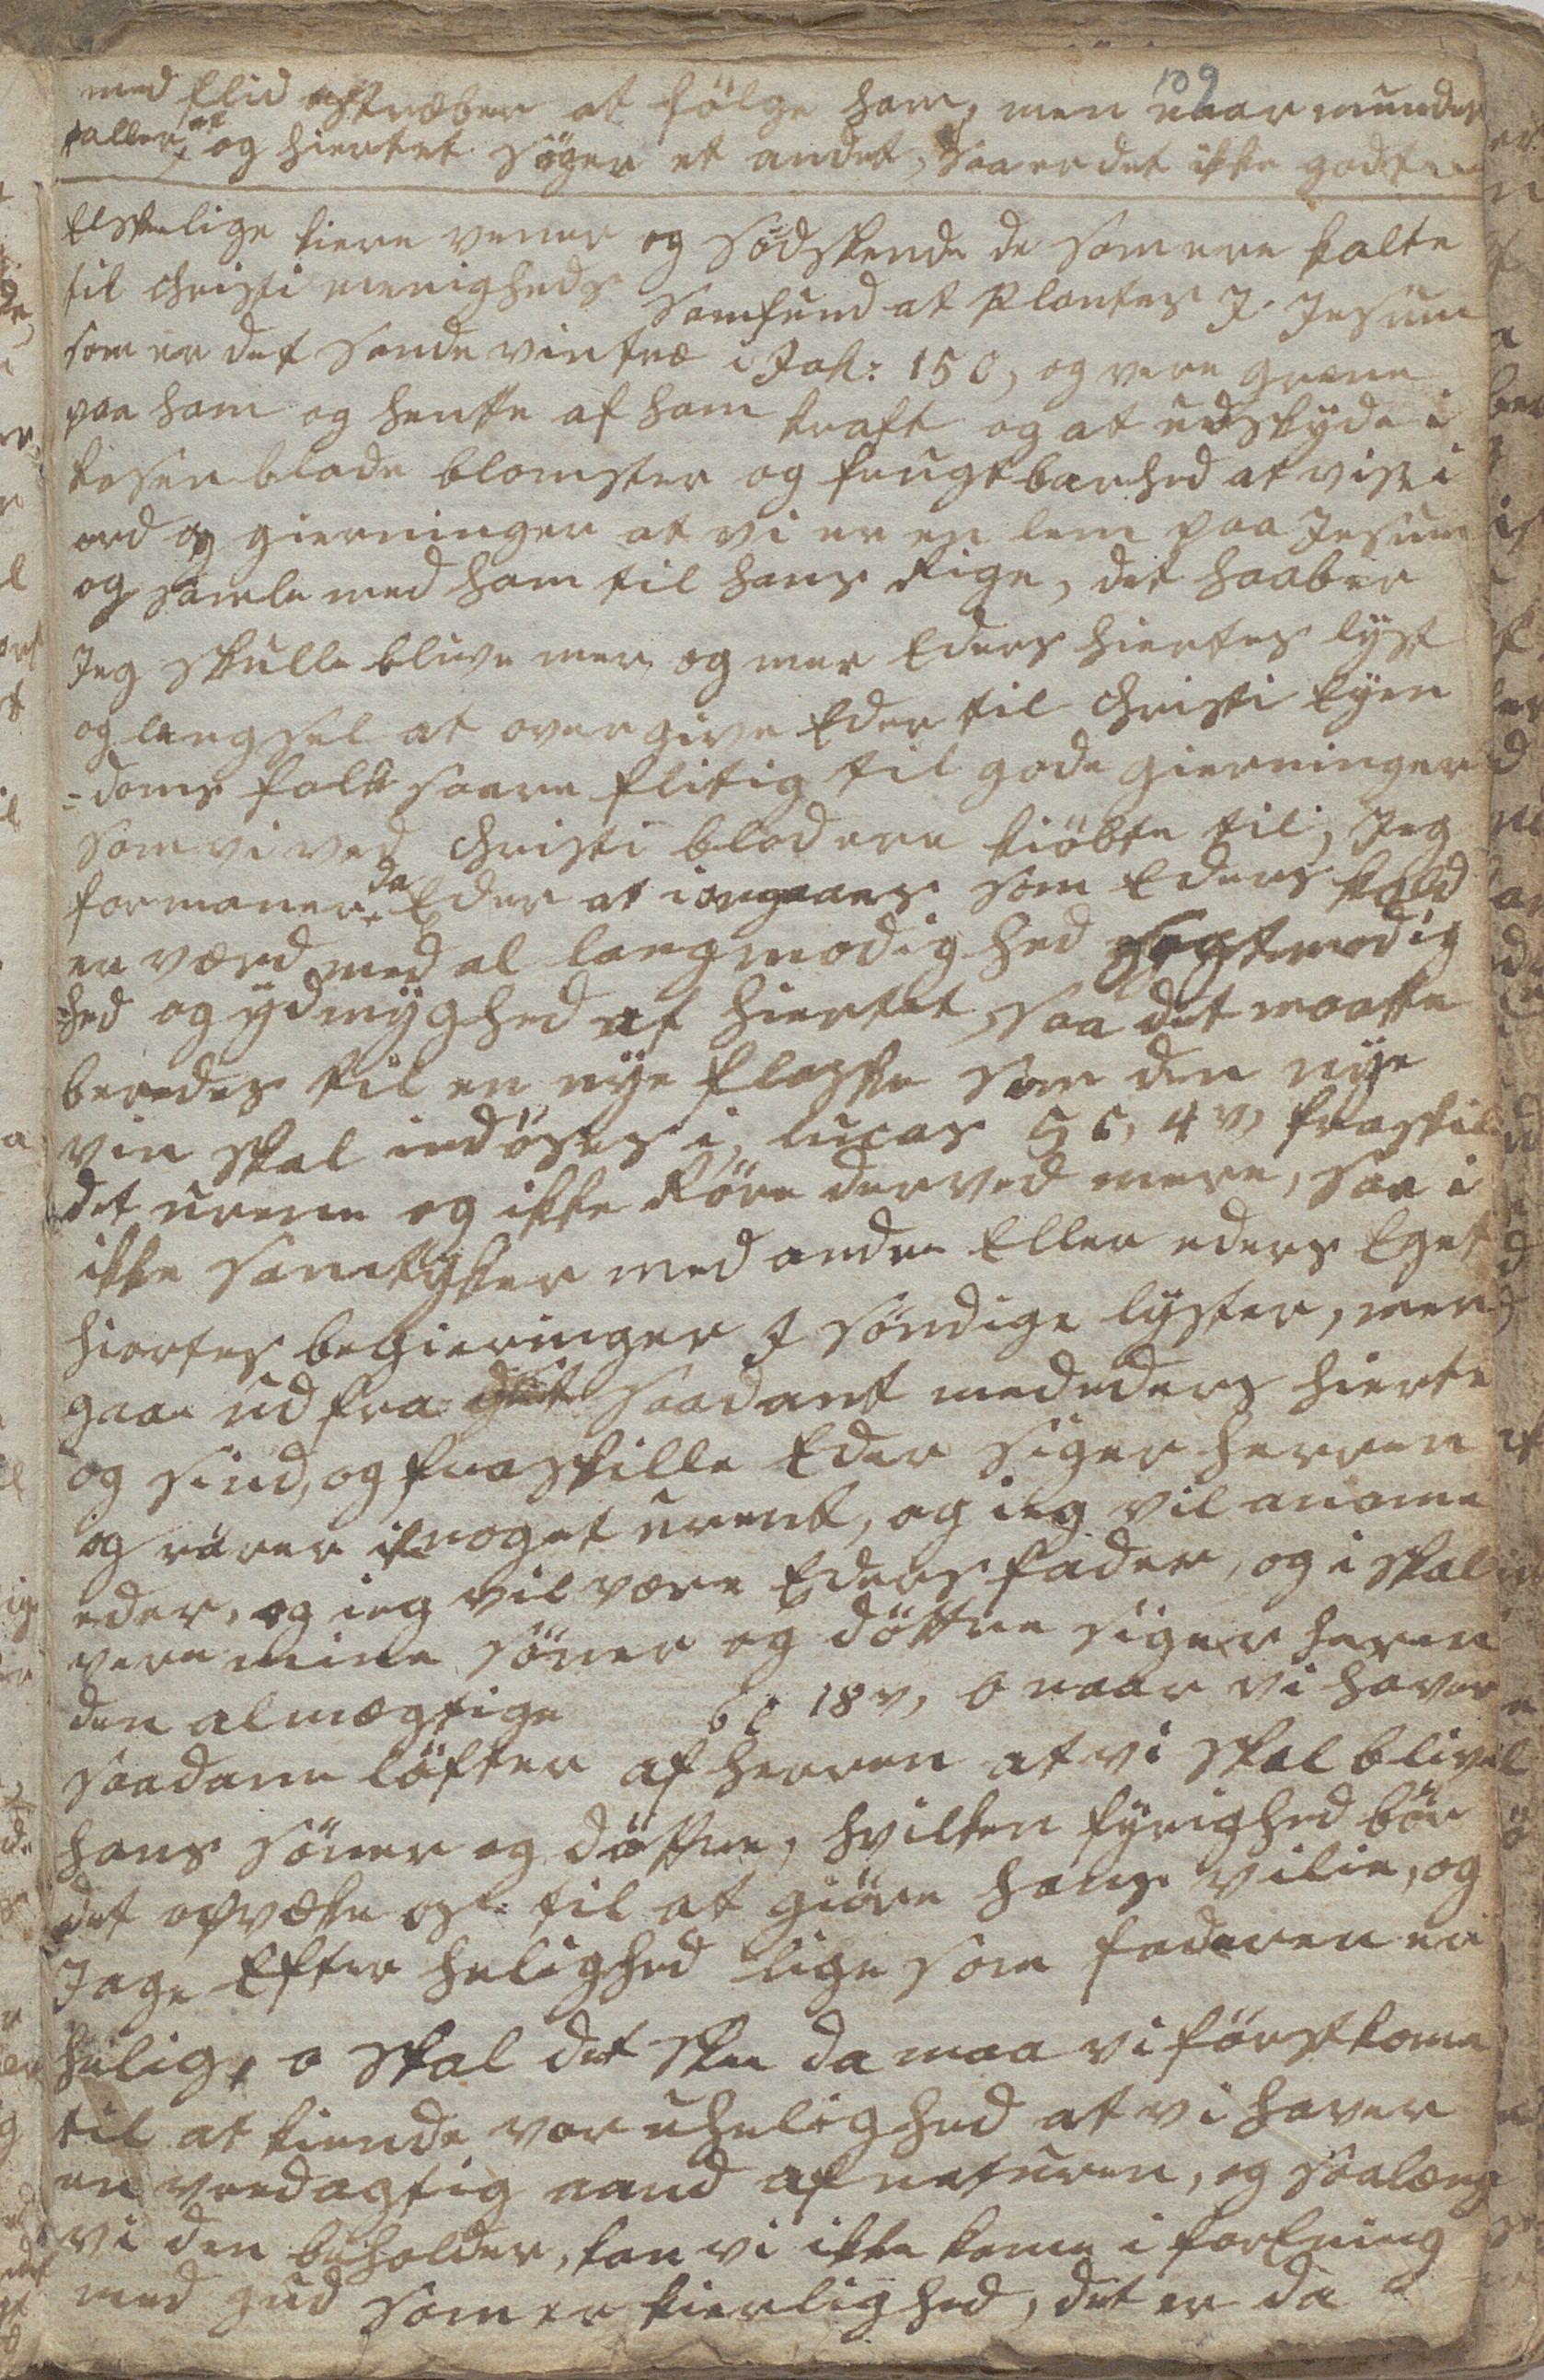 109
med flid estræber at följe ham, men naar munden
taller et og hiertet söger et andet, saa er det ikke godt
Elskelige kiere venner og södskende de som ere kalte
til christi menigheds samfund at plantes I Jesum
som er det sande vintræ i Joh: 15 C, og vere grene
paa ham og hente af ham kraft og at udskyde i
kosen blade blomster og frugtbarhed at vise i
ord og gierninger at vi er en lem paa Jesum
og samle med ham til hans Rige, det haaber
Jeg skulle blive mer og mer Eders hiertes lyst
og lengsel at overgive Eder til Christi Eyen
-doms folk saare flitig til gode gierninger
som vi ved christi blod ere kiöbte til, Jeg
formaner da Eder at i omgaaes som Eders kald
er værd med al langmodighed sagtmodig
-hed og ydmyghed af hiertet, saa det maatte
beredes til en nye flaske som den nye
vin skal indöses i, lucas 5 C, 4 v, fraskil
det urene og ikke Röre derved mere, saa i
ikke samtykker med andre Eller eders Eget
hiertes begieringer I söndige lyster, men
gaar ud fra saadant med eders hierte
og sind, og fraskille Eder siger Herren
og rörer ik noget urent, og ieg vil anamme
eder, og ieg vil være Eders fader, og i skal
vere mine söner og döttre siger Herren
den almægtige 6 C 18 v, O naar vi haver
saadanne löfter af Herren at vi skal blive
hans söner og döttre, hvilken fyrighed bör
det opvekke os til at giöre hans vilie, og
Jage Efter helighed lige som faderen er
helig, o skal det skee da maa vi först komme
til at kiende vor uhelighed at vi haver
en vredagtig aand af naturen, og saalænge
vi den beholder, kan vi ikke komme i forEning
med gud som er kierlighed, det er da